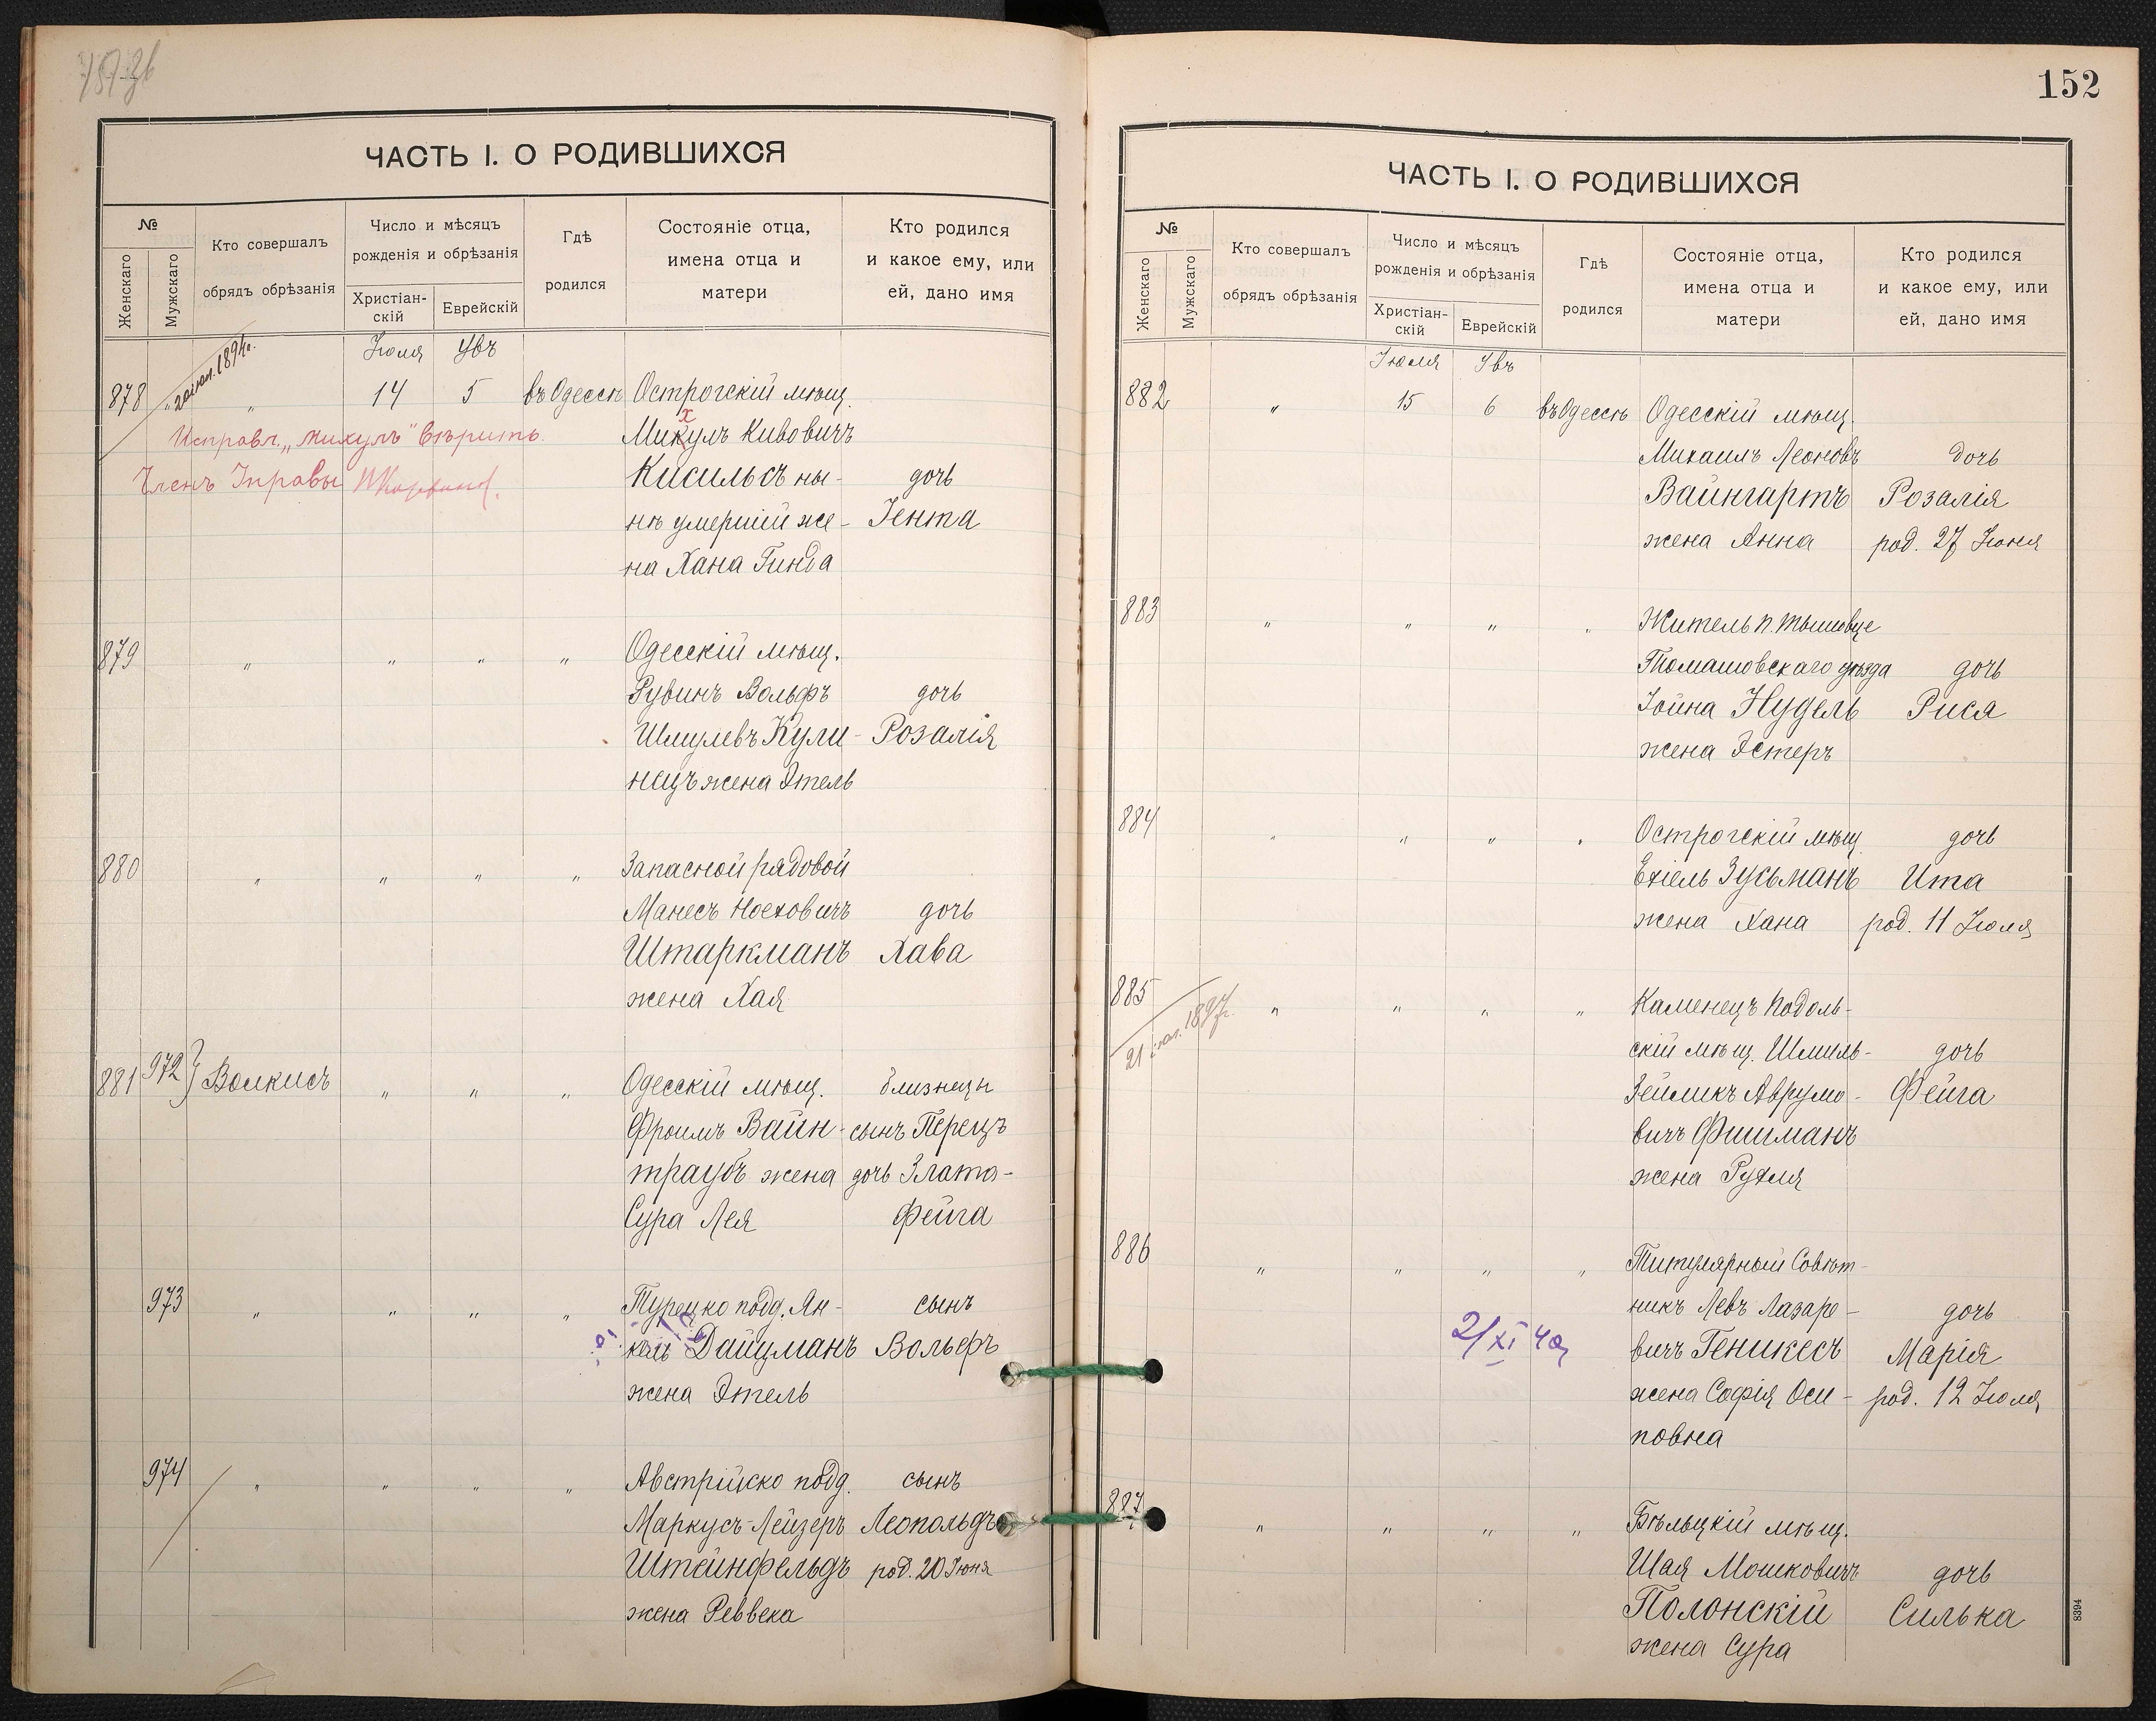 152
ЧАСТЬ I. О РОДИВШИХСЯ
№
Женскаго
Мужскаго
Кто совершалъ
обрядъ обрѣзанія
Число и мѣсяцъ
рожденія и обрѣзанія
Христіан-
скій
Еврейскій
Гдѣ
родился
Состояніе отца,
имена отца и
матери
Кто родился
и какое ему, или
ей, дано имя
Іюля Увъ
878 " 14 5 въ Одессѣ Острогскій мѣщ.
Микулъ Кивовичъ
х
Исправл. „Михулъ" вѣрить.
Членъ Управы
Кисильсъ ны- дочь
нѣ умершій же- Іента
на Хана Гинда
879 " " " " Одесскій мѣщ.
Рувинъ Вольфъ дочь
Шмулевъ Кули- Розалія
нецъ жена Этель
880 " " " " Запасной рядовой
Манесъ Ноеховичъ дочь
Штаркманъ Хава
жена Хая
881 972 } Волкисъ " " " Одесскій мѣщ. близнецы
Фроимъ Вайн- сынъ Перецъ
траубъ жена дочь Злата-
Сура Лея Фейга
973 " " " " Турецко подд. Ян- сынъ
кель Дайцманъ Вольфъ
жена Этель
974 " " " " Австрійско подд. сынъ
Маркусъ-Лейзеръ Леопольдъ
Штейнфельдъ род. 20 Іюня
жена Реввека
ЧАСТЬ I. О РОДИВШИХСЯ
№
Женскаго
Мужскаго
Кто совершалъ
обрядъ обрѣзанія
Число и мѣсяцъ
рожденія и обрѣзанія
Христіан-
скій
Еврейскій
Гдѣ
родился
Состояніе отца,
имена отца и
матери
Кто родился
и какое ему, или
ей, дано имя
Іюля Увъ
882 " 15 6 въ Одессѣ Одесскій мѣщ.
Михаилъ Леоновъ дочь
Вайнгартъ Розалія
жена Анна род. 27 Іюня
883 " " " " Житель п. Тышовце
Томашовскаго уѣзда дочь
Іойна Нудель Рися
жена Эстеръ
884 " " " " Острогскій мѣщ. дочь
Ехіель Зусьманъ Ита
жена Хана род. 11 Іюля
885 " " " " Каменецъ Подоль-
21 1897г.
скій мѣщ. Шмиль- дочь
Зейликъ Аврумо- Фейга
вичъ Фишманъ
жена Рухля
886 " " " " Титулярный Совѣт-
никъ Левъ Лазаре- дочь
2/XI 40
вичъ Геникесъ Марія
жена Софія Оси- род. 12 Іюля
повна
887 " " " " Бѣльцкій мѣщ.
Шая Мошковичъ дочь
Полонскій Силька
жена Сура
8394